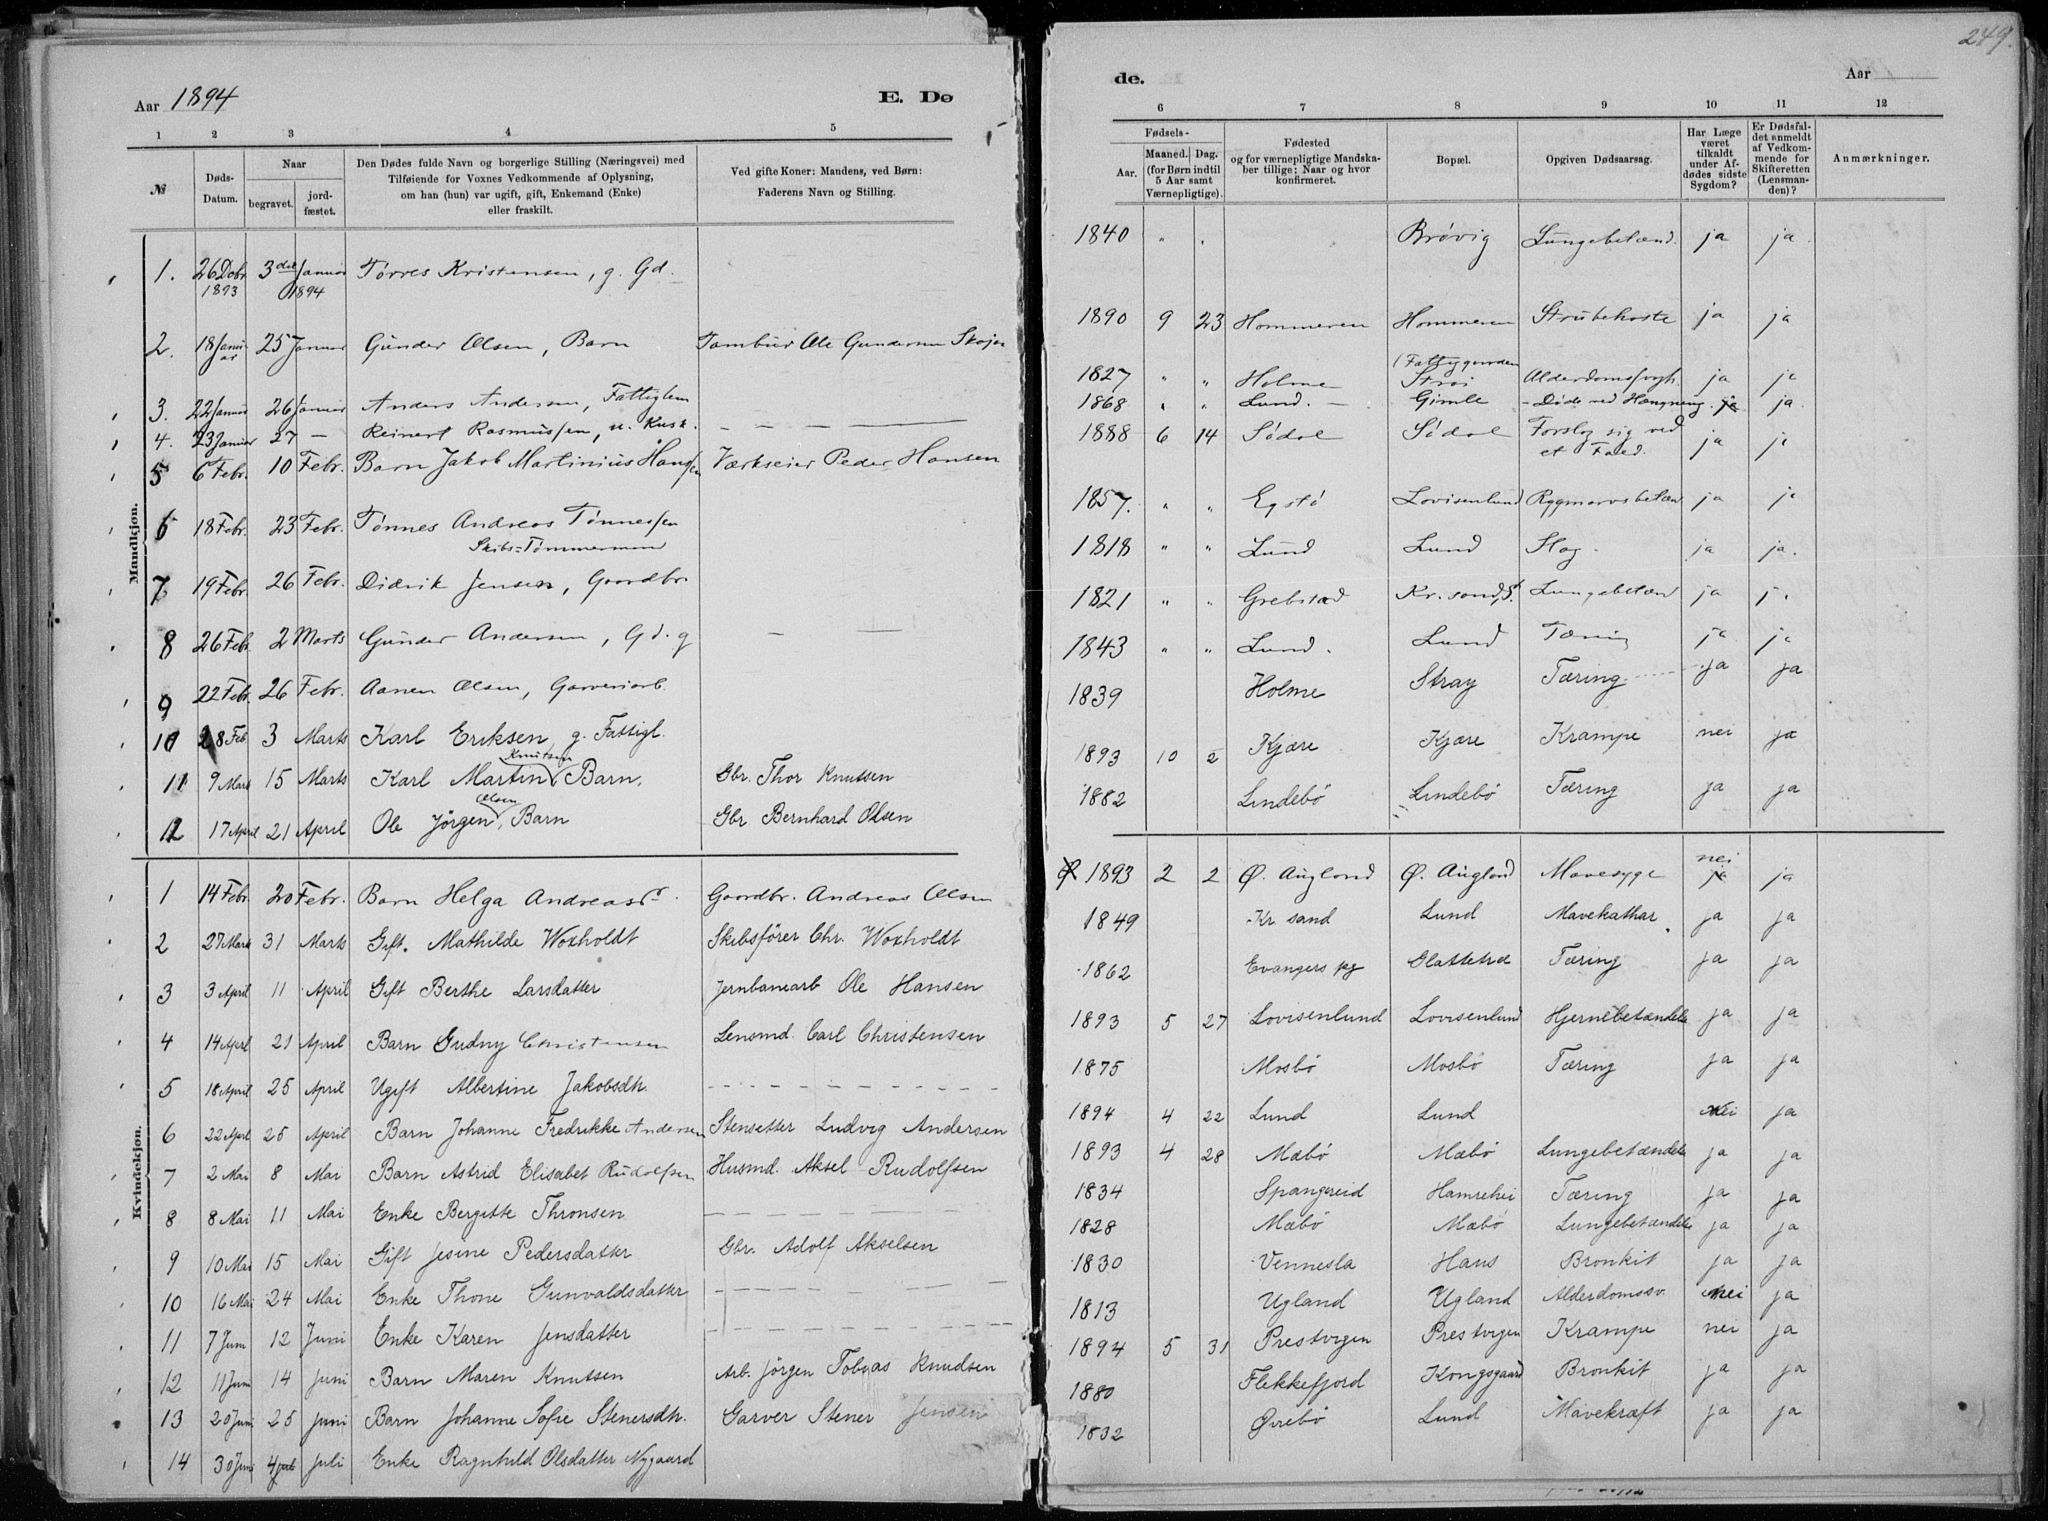 Aar 1894
E. Dø
1 2 3 4 5
№
Døds-Datum.
Naar
begravet.
jord-fæstet.
Den Dødes fulde Navn og borgerlige Stilling (Næringsvei) med
Tilføiende for Voxnes Vedkommende af Oplysning,
om han (hun) var ugift, gift, Enkemand (Enke)
eller fraskilt.
Ved gifte Koner: Mandens, ved Børn:
Faderens Navn og Stilling.
Mandkjøn.
1. 26 Debr 1893 3die Januar 1894 Tørres Kristensen, g. Gd.
2. 18 Januar 25 Januar Gunder Olsen, Barn Tambur Ole Gundersen
3. 22 Januar 26 Januar Anders Andersen, Fattiglem
4. 23 Januar 27 — Reinert Rasmussen, u. Kusk. — — —
5 6 Febr. 10 Febr. Barn Jakob Martinius Hansen Værkseier Peder Hansen
6 18 Febr. 23 Febr. Tønnes Andreas Tønnessen
Skibs-Tømmermand
7 19 Febr. 26 Febr. Didrik Jensen, Gaardbr.
8 26 Febr. 2 Marts Gunder Andersen, Gd. g — —
9 22 Febr. 26 Febr. Aanen Olsen, Garveriarb.
10 28 Feb 3 Marts Karl Eriksen g. Fattigl.
11 9 Mars 15 Marts Karl Martin Knutsen Barn. Gbr. Thor Knutsen
12 17 April 21 April Ole Jörgen Olsen, Barn Gbr Bernhard Olsen
Kvindekjøn.
1 14 Febr. 20 Febr. Barn Helga Andreasd. Gaardbr. Andreas Olsen
2 27 Marts 31 Marts Gift. Mathilde Woxholdt Skibsförer Chr. Woxholdt
3 3 April 11 April Gift Berthe Larsdatter Jernbanearb Ole Hansen
4 14 April 21 April Barn Gudny Christensen Lensmd. Carl Christensen
5 18 April 25 April Ugift Albertine Jakobsdtr.
6 22 April 25 April Barn Johanne Fredrikke Andersen Stensetter Ludvig Andersen
7 2 Mai 8 Mai Barn Astrid Elisabet Rudolfsen Husmd. Aksel Rudolfsen
8 8 Mai 11 Mai Enke Bergitte Thronsen
9 10 Mai 15 Mai Gift Jesine Pedersdatter Gbr. Adolf Akselsen
10 16 Mai 24 Mai Enke Thone Gunvaldsdatter
11 7 Juni 12 Juni Enke Karen Jensdatter
12 11 Juni 14 Juni Barn Maren Knutsen Arb. Jörgen Tobias Knudsen
13 20 Juni 25 Juni Barn Johanne Sofie Stenersdtr. Garver Stener Jensen
14 30 Juni 4 Juli Enke Ragnhild Olsdatter Nygaard
249.
de.
Aar
6 7 8 9 10 11 12
Fødsels-
Aar.
Maaned. Dag.
(for Børn indtil
5 Aar samt
Værnepligtige).
Fødested
og for værnepligtige Mandska-
ber tillige: Naar og hvor
konfirmeret.
Bopæl.
Opgiven Dødsaarsag.
Har Læge
været
tilkaldt
under Af-
dødes sidste
Sygdom?
Er Dødsfal-
det anmeldt
af Vedkom-
mende for
Skifteretten
(Lensman-
den)?
Anmærkninger.
1840 " " Brøvig Lungebetænd. ja ja.
1890 9 23 Hommeren Hommeren Strubehoste ja ja
1827 " " Holme (Fattiggaarden Strai Alderdomssvgh. ja ja
1868 " " Lund. — Gimle - Døde ved Hængning. ja ja.
1888 6 14 Sødal Sødal Forslog sig ved
et Fald. ja ja
1857. " " Egstø Lovisenlund Rygmarvsbetæn ja ja
1818 " " Lund Lund Slag. ja ja.
1821 " " Grebstad Kr. sand, S. Lungebetæn ja j.
1843 " " Lund. Lund Tæring ja ja
1839 Holme Stray Tæring ja ja
1893 10 2 Kjære Kjære Krampe nei ja
1882 Lindebö Lindebö Tæring ja ja
1893 2 2 Ø. Augland Ø. Augland Mavesyge nei ja ja
1849 Kr sand Lund Mavekathar. ja ja
1862 Evangers pg Slattetræ Tæring ja ja
1893 5 27 Lovisenlund Lovisenlund Hjernebetændelse ja ja
1875 Mosbö Mosbö Tæring ja ja
1894 4 22 Lund Lund nei ja
1893 4 28 Mæbö Mæbö Lungebetændelse ja ja
1834 Spangereid Hamrehei Tæring ja ja
1828 Mæbö Mæbö Lungebetændelse ja ja
1830 Vennesla Haus Bronkit ja ja
1813 Ugland Ugland Alderdomssv. nei ja
1894 5 31 Prestvigen Prestvigen Krampe nei ja
1880 Flekkefjord Kongsgaard Bronkit ja ja
1832 Øvrebö Lund Mavekræft ja ja